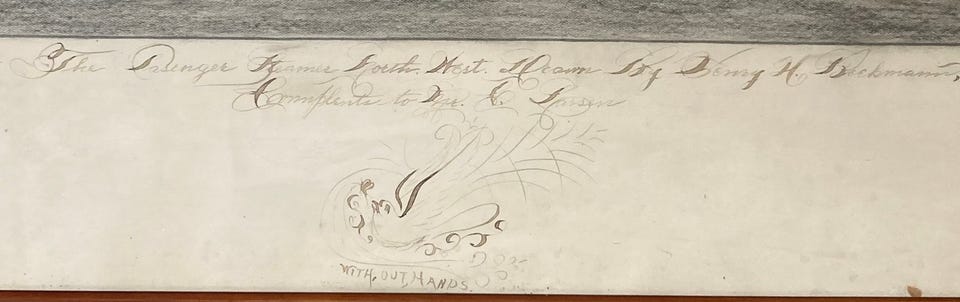 The Pasenger Steamer North. West. Drawn By Henry H. Bockmann,
Compliments to Mr. C. Larsen
WITH, OUT, HANDS.